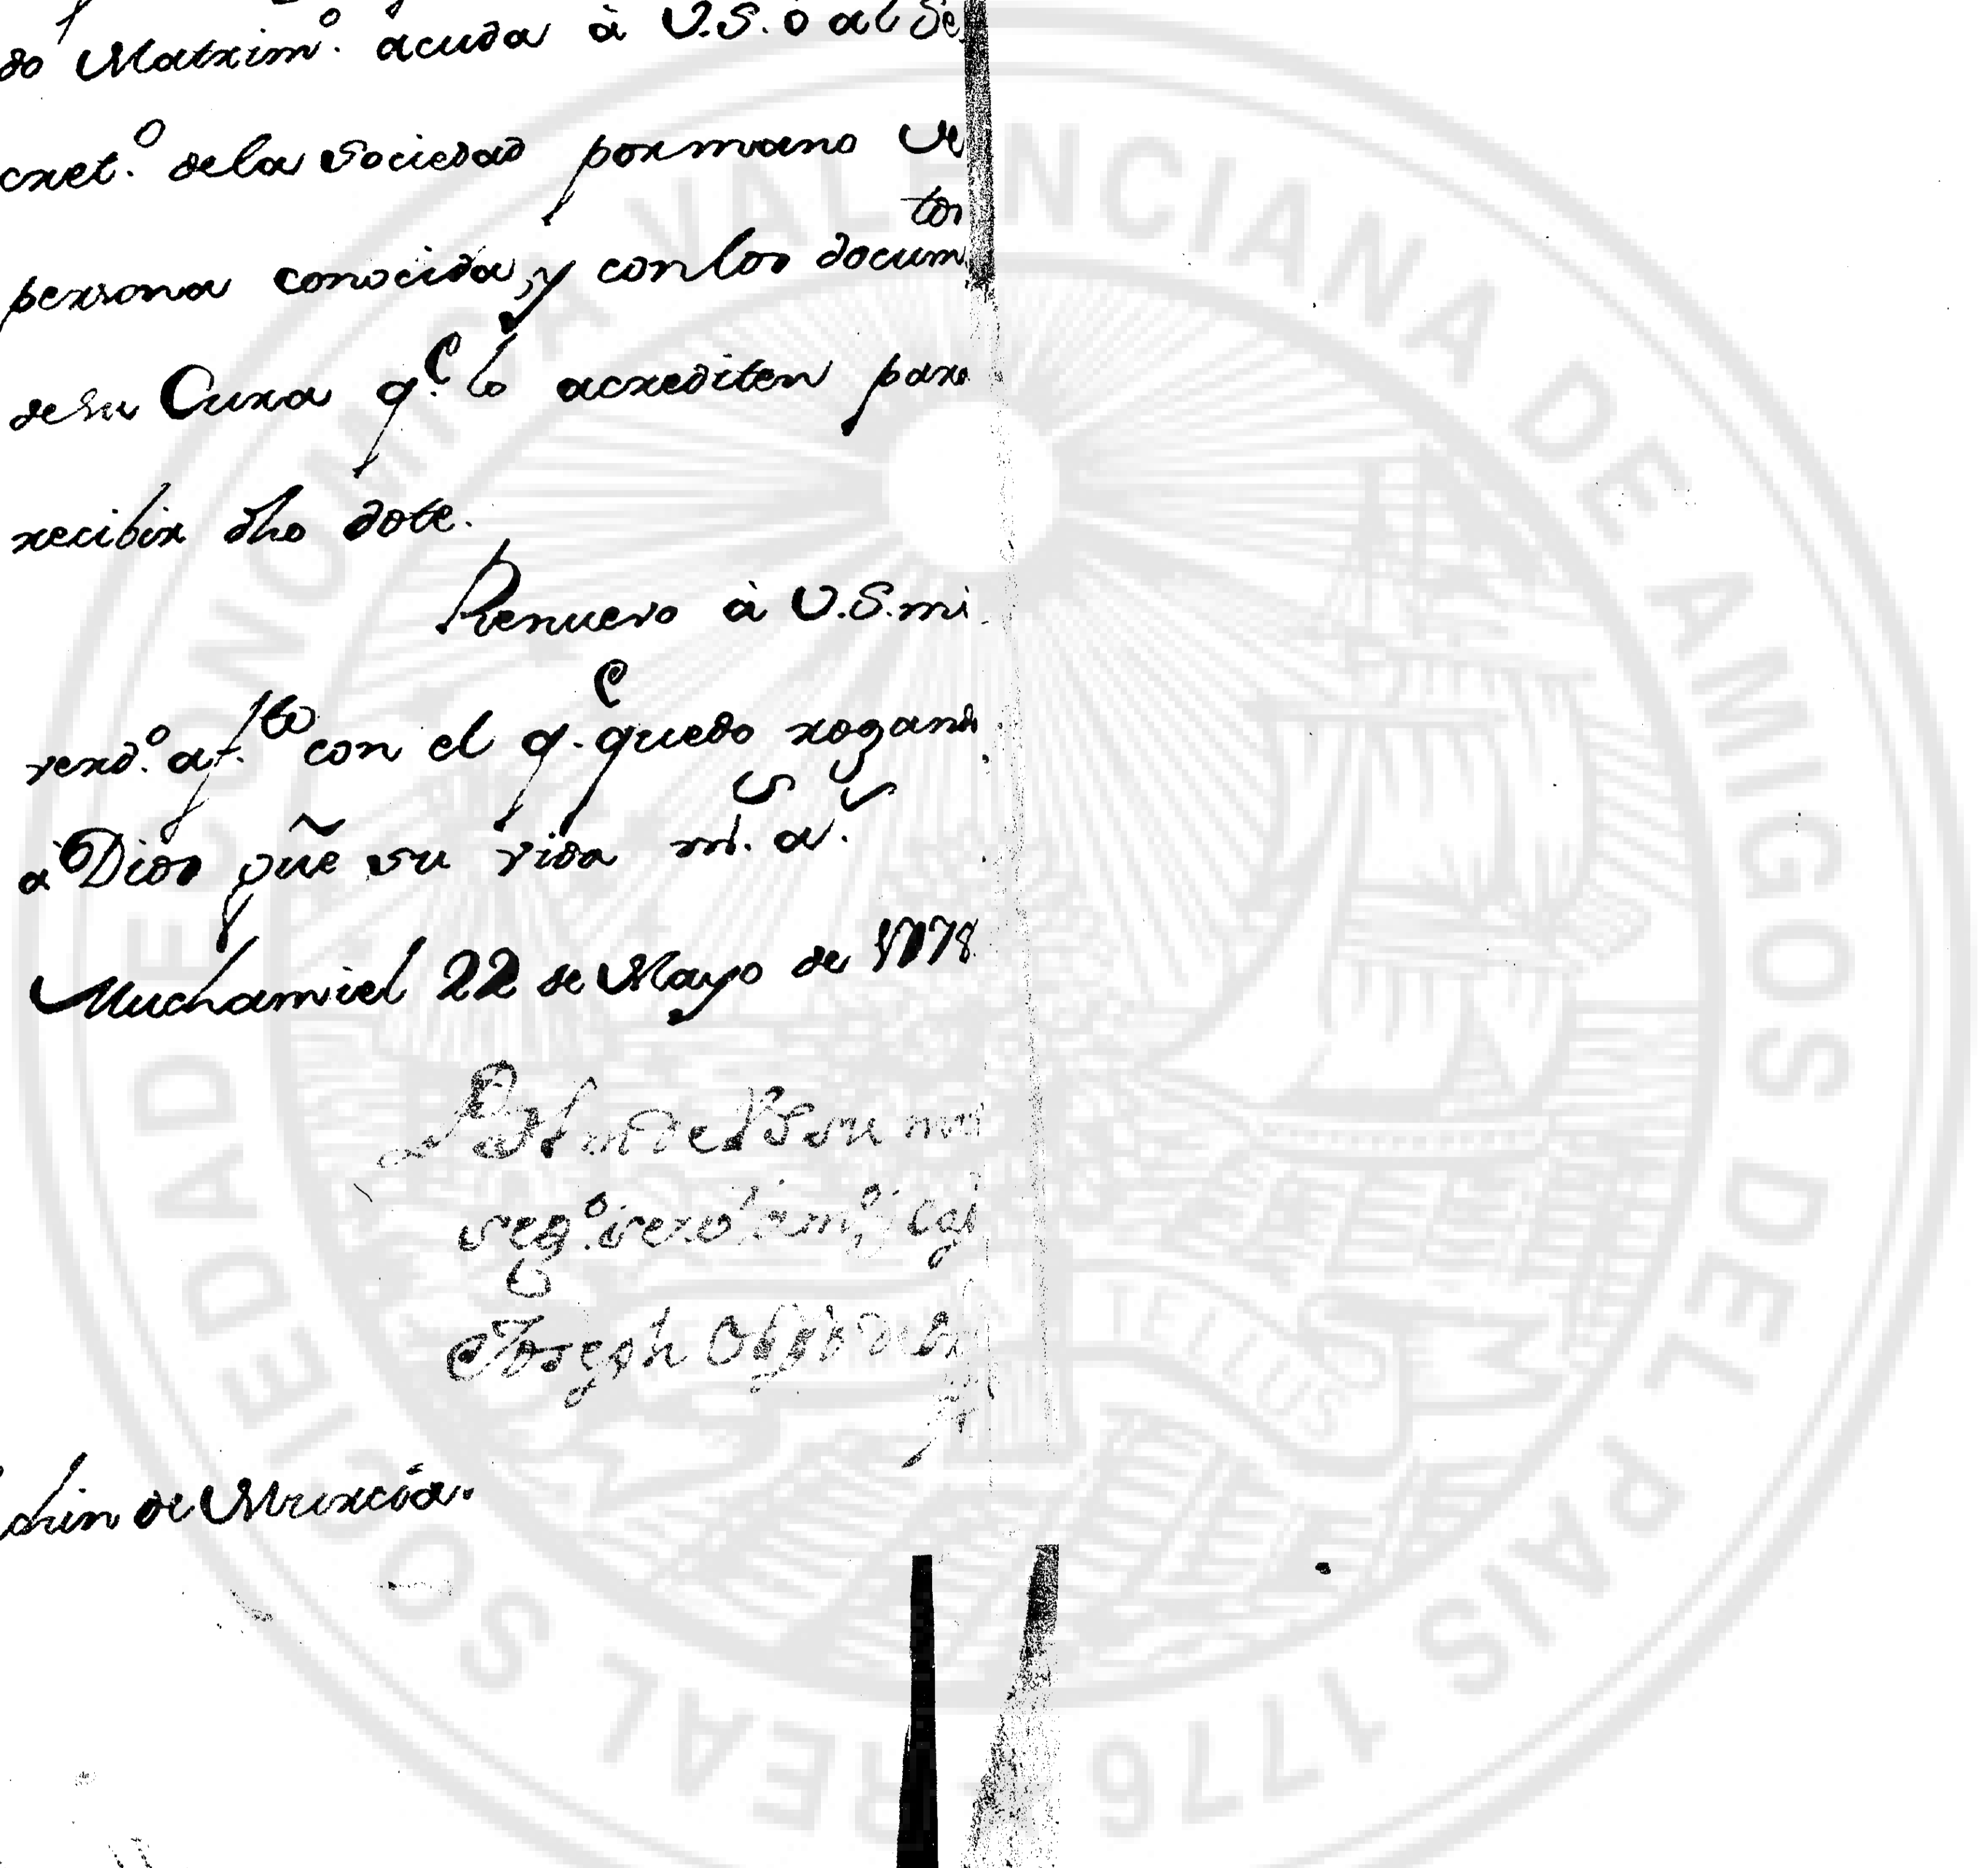 do Matrim.º acuda à V.S. ò al Se
cret.º dela Sociedad por mano de
persona conocida, y con los docum.tos
de su Cura q.e lo acrediten para
recibir dho dote.
Renuevo à V.S. mi
verd.º af.to con el q.e quedo rogando
à Dios gũe su vida m.s a.s
Muchamiel 22 de Mayo de 1778
B l m de V S su
seg.º
Joseph
de Murcia.
REAL SOCIEDAD ECONOMICA VALENCIANA DE AMIGOS DEL PAIS 1776